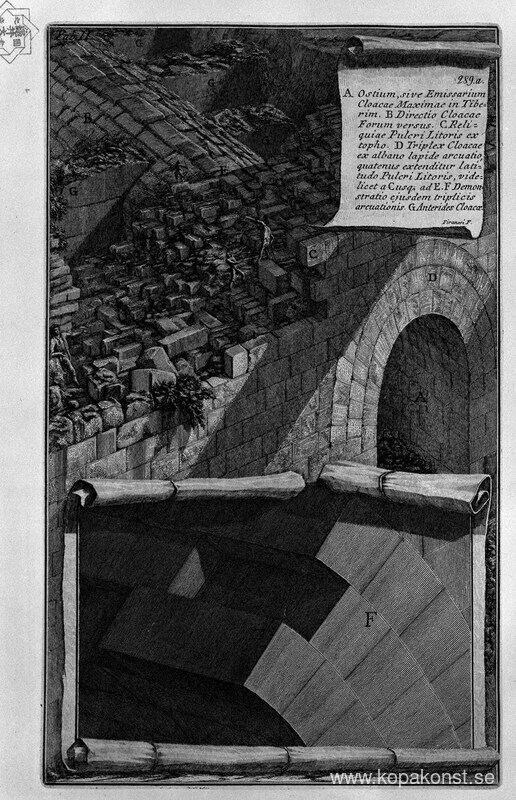 Tab. II
289.a.
A. Ostium, sive Emissarium
Cloacae Maximae in Tibe-
rim. B Directio Cloacae
Forum versus. C.Reli-
quiae Pulcri Litoris ex
topho. D Triplex Cloacae
ex albano lapide arcuatio,
quatenus extenditur lati-
tudo Pulcri Litoris, vide-
licet a C usq. ad E. F Demon-
stratio ejusdem triplicis
arcuationis. G Anterides Cloacae
Piranesi F.
G
G
B
G
C
D
A
F
www.kopakonst.se